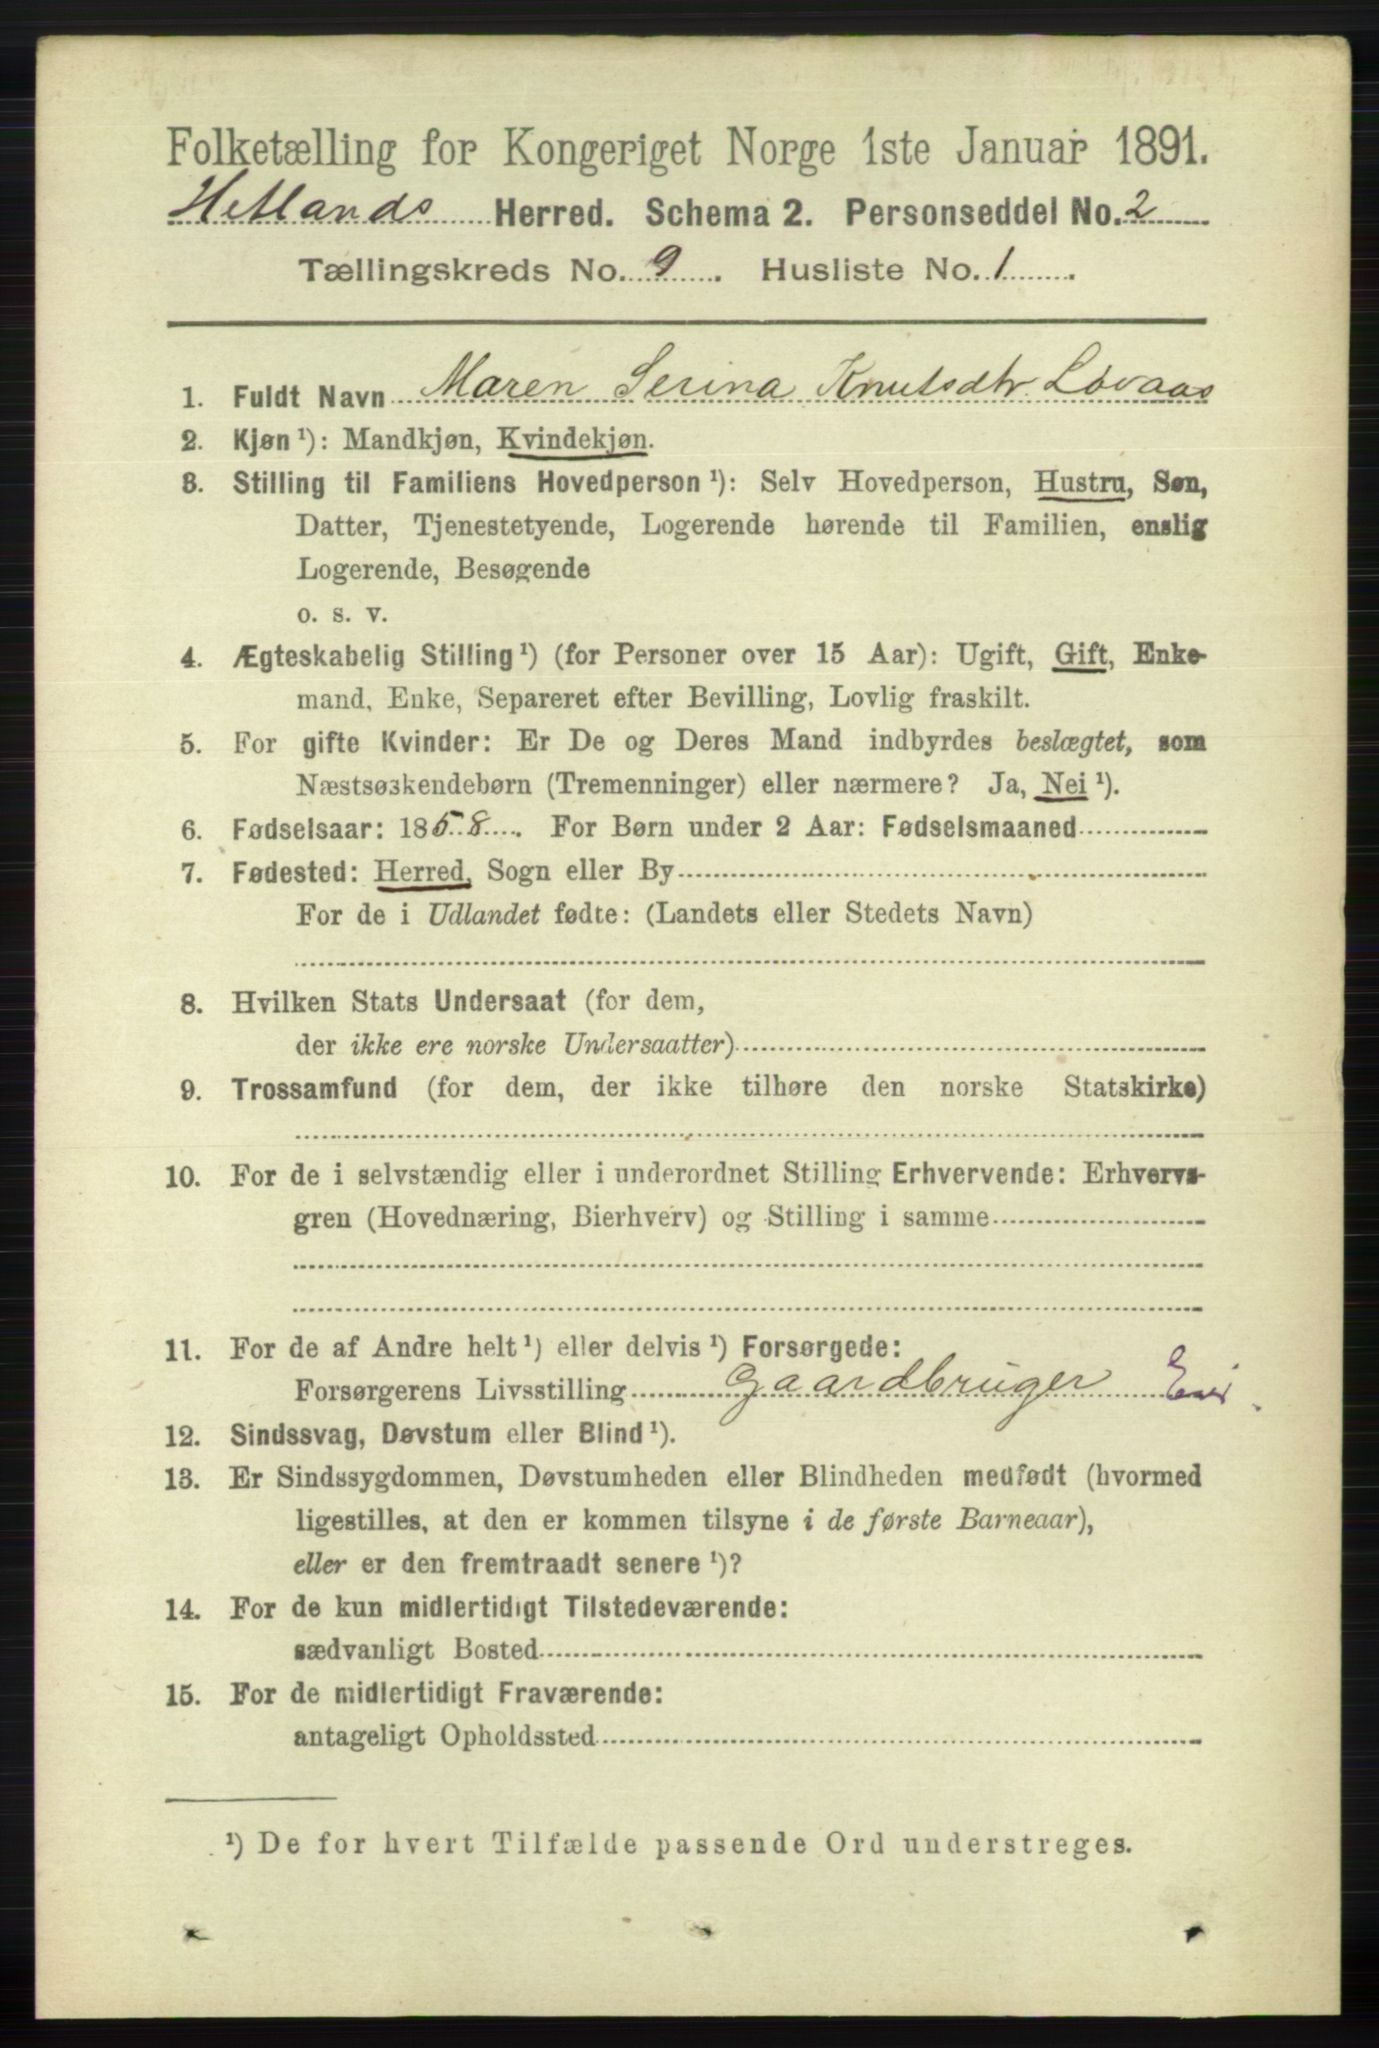 Folketælling for Kongeriget Norge 1ste Januar 1891.
Hetlands Herred. Schema 2. Personseddel No. 2
Tællingskreds No. 9. Husliste No. 1.
1. Fuldt Navn Maren Serina Knutsdtr. Lövaas
2. Kjøn ¹): Mandkjøn, Kvindekjøn.
3. Stilling til Familiens Hovedperson ¹): Selv Hovedperson, Hustru, Søn,
Datter, Tjenestetyende, Logerende hørende til Familien, enslig
Logerende, Besøgende
o. s. v.
4. Ægteskabelig Stilling ¹) (for Personer over 15 Aar): Ugift, Gift, Enke-
mand, Enke, Separeret efter Bevilling, Lovlig fraskilt.
5. For gifte Kvinder: Er De og Deres Mand indbyrdes beslægtet, som
Næstsøskendebørn (Tremenninger) eller nærmere? Ja, Nei ¹).
6. Fødselsaar: 1858. For Børn under 2 Aar: Fødselsmaaned
7. Fødested: Herred, Sogn eller By
For de i Udlandet fødte: (Landets eller Stedets Navn)
8. Hvilken Stats Undersaat (for dem,
der ikke ere norske Undersaatter)
9. Trossamfund (for dem, der ikke tilhøre den norske Statskirke)
10. For de i selvstændig eller i underordnet Stilling Erhvervende: Erhvervs-
gren (Hovednæring, Bierhverv) og Stilling i samme
11. For de af Andre helt ¹) eller delvis ¹) Forsørgede:
Forsørgerens Livsstilling Gaardbruger
12. Sindssvag, Døvstum eller Blind ¹).
13. Er Sindssygdommen, Døvstumheden eller Blindheden medfødt (hvormed
ligestilles, at den er kommen tilsyne i de første Barneaar),
eller er den fremtraadt senere ¹)?
14. For de kun midlertidigt Tilstedeværende:
sædvanligt Bosted
15. For de midlertidigt Fraværende:
antageligt Opholdssted
¹) De for hvert Tilfælde passende Ord understreges.